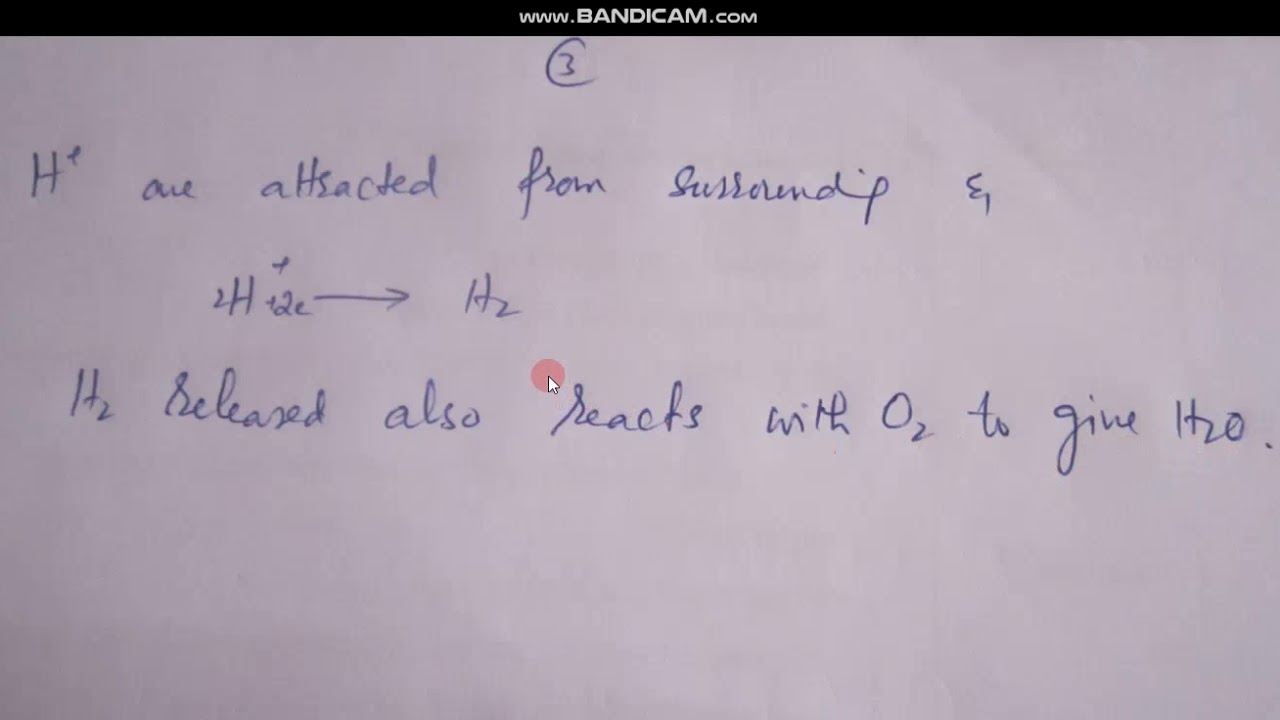 www.BANDICAM.com
3
H⁺ are attracted from surrounding &
2H⁺+2e → H₂
H₂ released also reacts with O₂ to give H₂O.